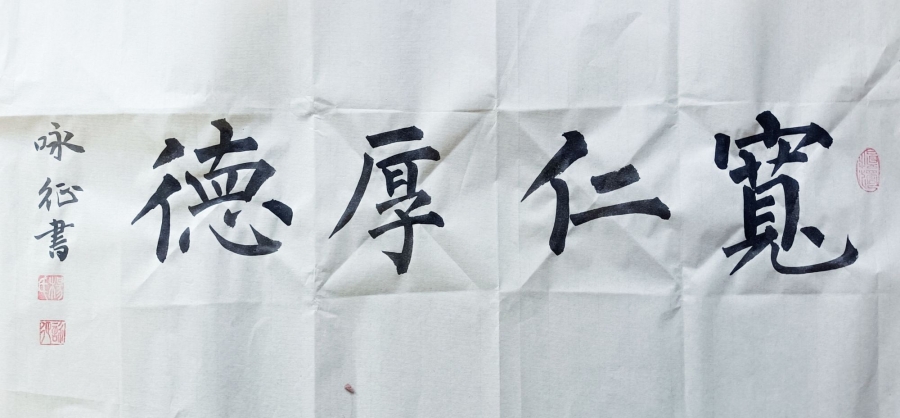 寬仁厚德
咏征書